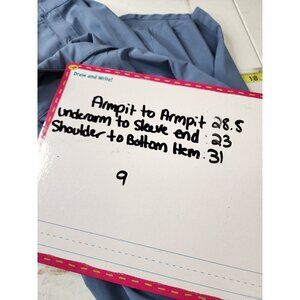 Draw and Write!
Armpit to Armpit 28.5
underarm to Sleeve end : 23
Shoulder to Bottom Hem : 31
9
18